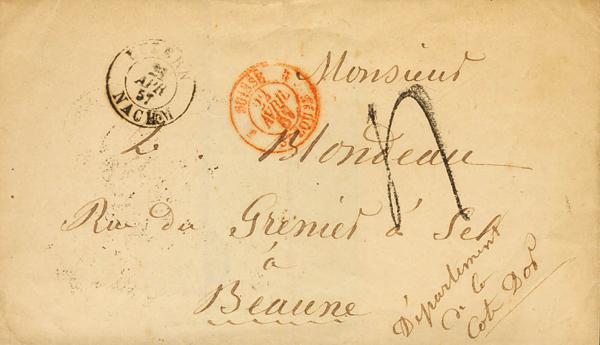 BERN
AVR
57
NACHM
SUISSE
AVRIL
57
Monsieur
L. Blondeau
Rue du Grenier à Sel
à
Beaune
Département
de la
Cote Dor